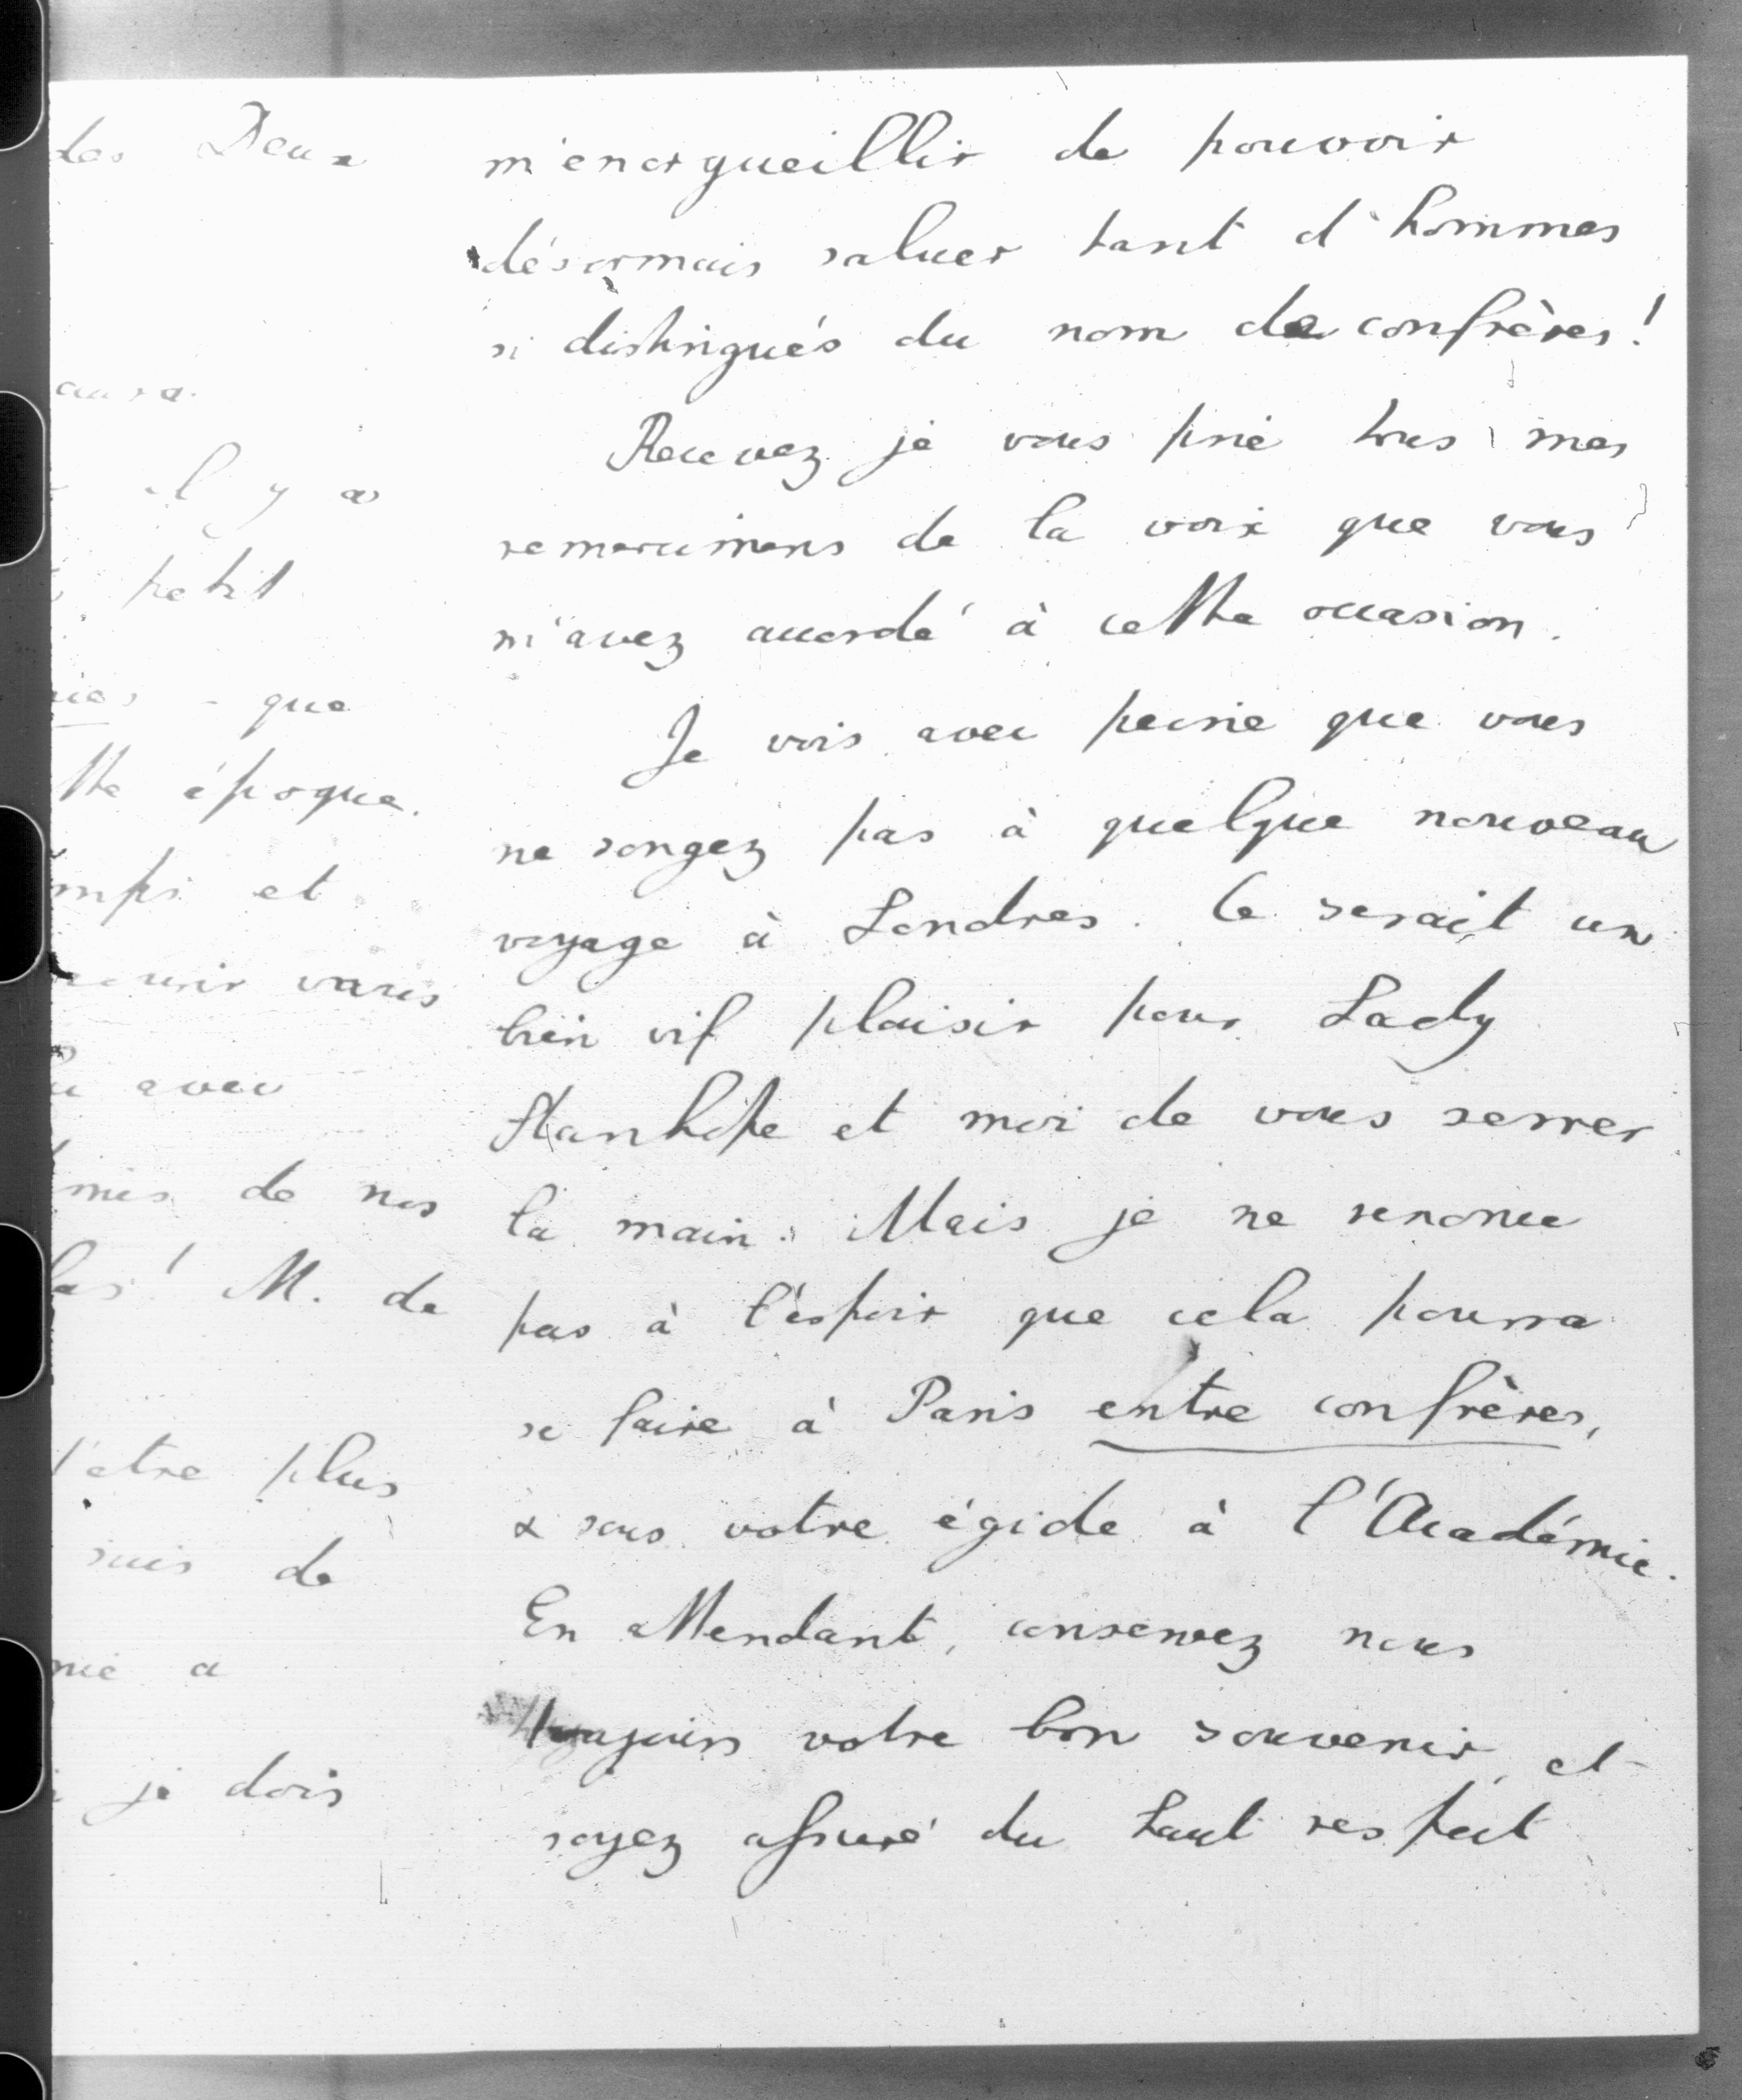 des Deux
il y a
petit
que
tte époque.
et
avec
mis de nos
las! M. de
être plus
suis de
a
je dois
m'enorgueillir de pouvoir
désormais saluer tant d'hommes
si distingués du nom de confrères!
Recevez je vous prie tous mes
remercimens de la voix que vous
m'avez accordé à cette occasion.
Je vois avec peine que vous
ne songez pas à quelque nouveau
voyage à Londres. Ce serait un
bien vif plaisir pour Lady
Stanhope et moi de vous serrer
la main. Mais je ne renonce
pas à l'espoir que cela pourra
se faire à Paris entre confrères,
& sous votre égide à l'Académie.
En attendant, conservez nous
toujours votre bon souvenir, et
soyez assuré du haut respect